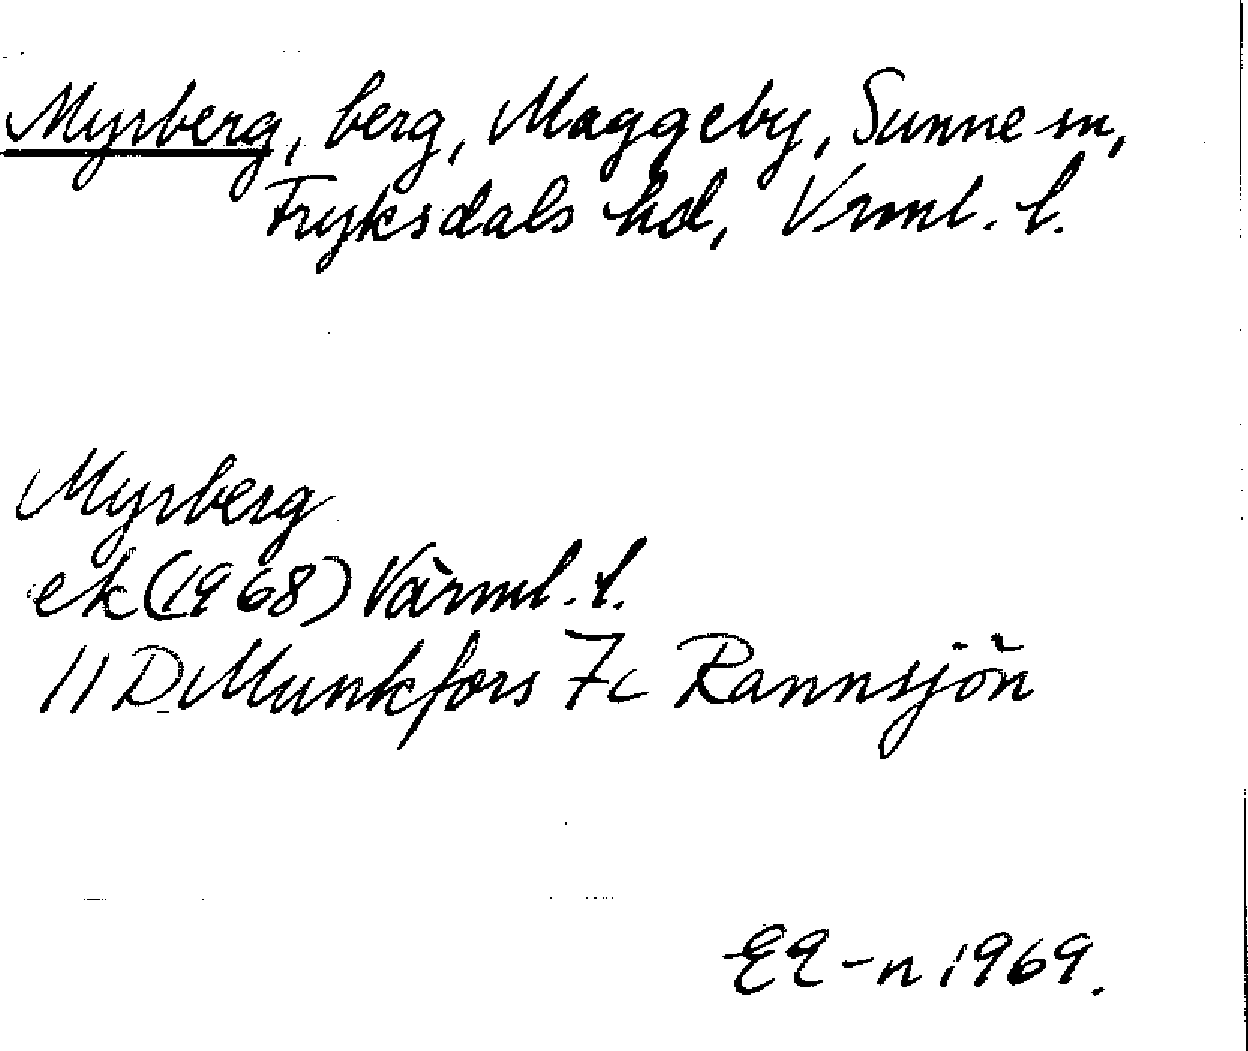 Myrberg, berg, Maggeby, Sunne sn,
Fryksdals hd, Vrml. l.
Myrberg
ek (1968) Värml. l.
11 D Munkfors 7c Rannsjön
EL-n 1969.